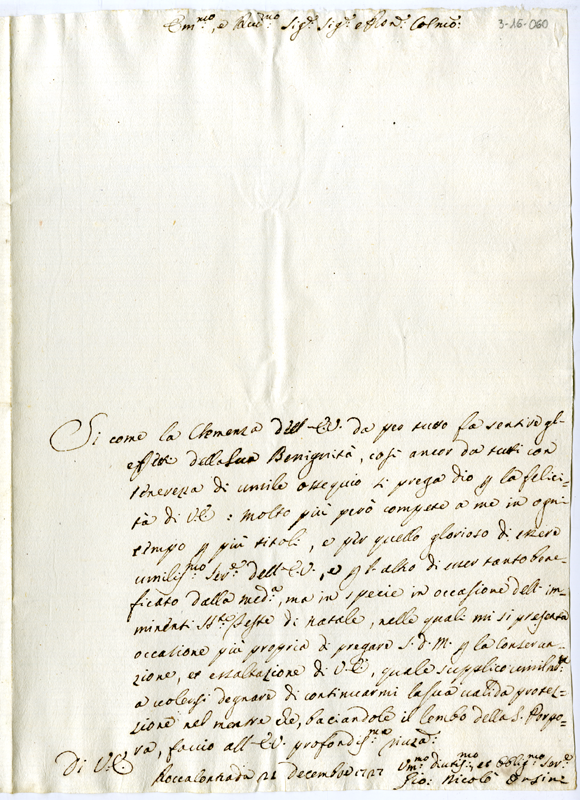 Em.mo, e Rev.mo Sig.r Sig.r e Pron.
3-16-060
Si come la Clemenza dell'E.V. da per tutto fa sentire gl'
effetti della sua Benignità, così ancor da tutti con
tenerezza di umile ossequio si prega dio p la felici-
tà di V.E: molto più però compete a me in ogni
tempo p più titoli, e per quello glorioso di essere
umiliss.mo Ser.e dell'E.V., e p l'altro di esser tanto bene-
ficato dalla med.a, ma in specie in occasione dell'im-
minenti SS.te feste di natale, nelle quali mi si presenta
occasione più propria di pregare S.d.M. p la conserva-
zione, et essaltazione di V.E, quale supplico umilm.te
a volersi degnare di continuarmi la sua valida protez-
zione nel mentre che, baciandole il lembo della S. Porpo-
ra, faccio all'E.V. profondiss.ma
Di V.E.
Roccalontrada 21 decembre 1727
Um.mo divotiss.mo, et oblig.mo Ser.e
Gio: Nicolò Orsini